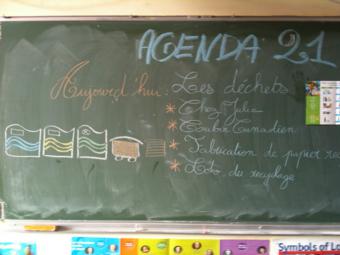 AGENDA 21
Aujourd'hui : Les déchets
* Chez Julie
* Tambour Canadien
* Fabrication de papier rec
* Loto du recyclage
Symbols of Lo